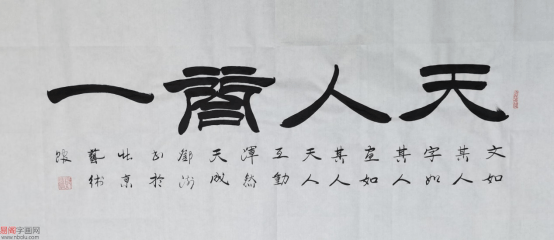 天人一
文如
其人
字如
其人
如
其人
天人
互動
渾然
天成
书於
北京
藝術
字画网